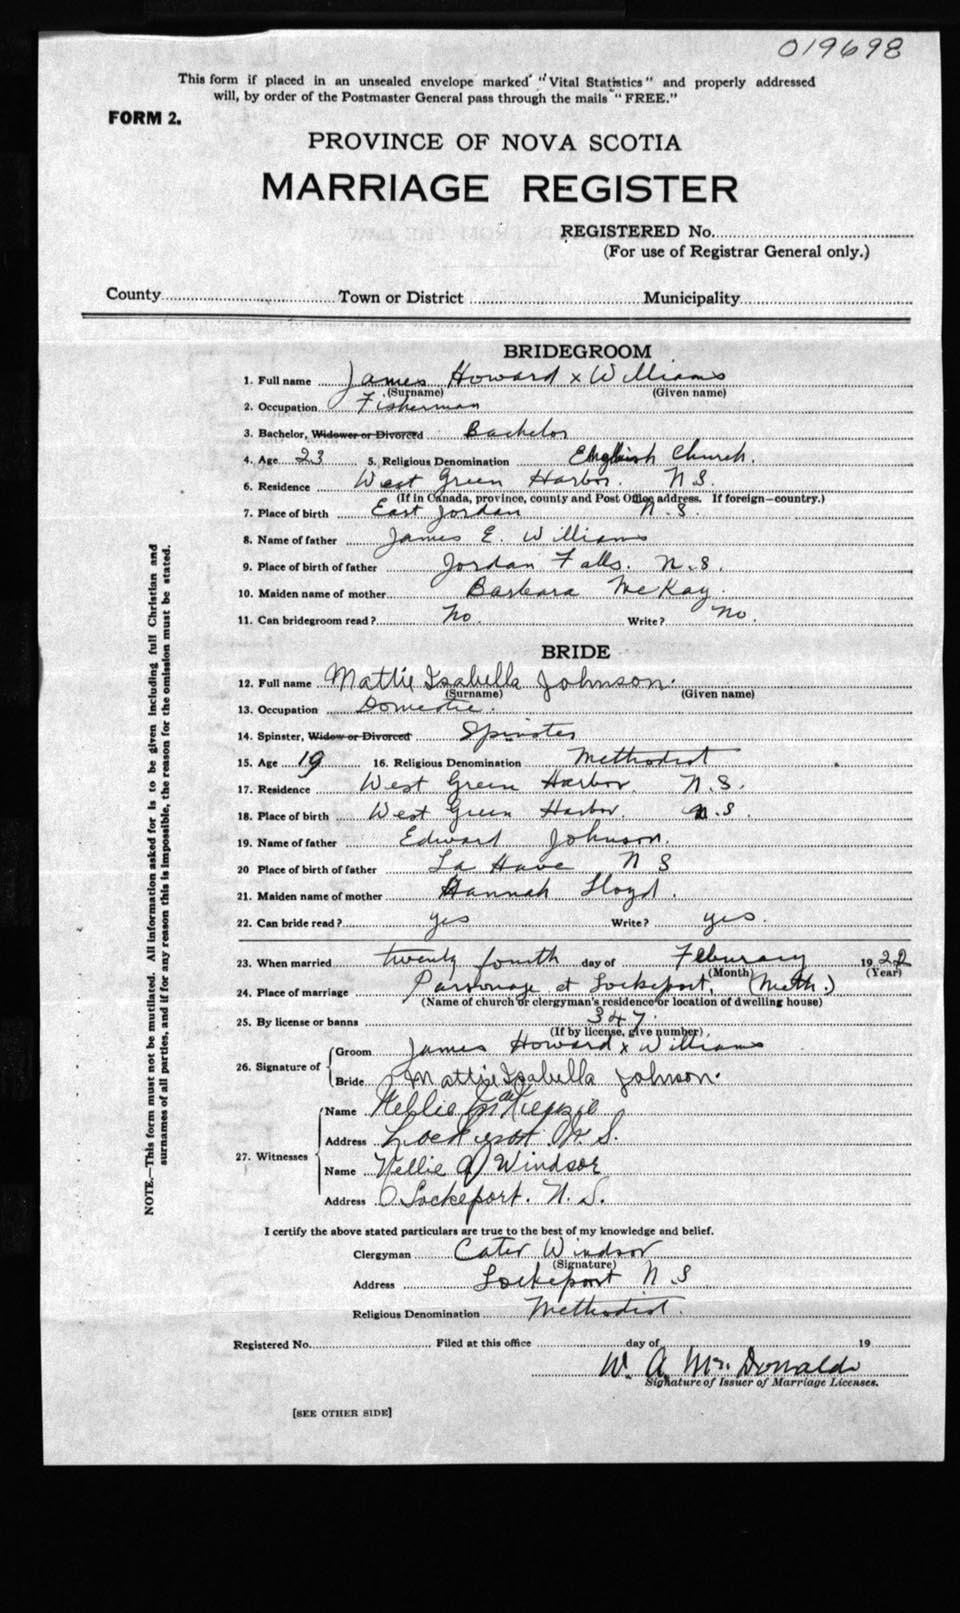 019698
This form if placed in an unsealed envelope marked "Vital Statistics" and properly addressed
will, by order of the Postmaster General pass through the mails "FREE."
FORM 2.
PROVINCE OF NOVA SCOTIA
MARRIAGE REGISTER
REGISTERED No.
(For use of Registrar General only.)
County Town or District Municipality
BRIDEGROOM
1. Full name James Howard x Williams
(Surname) (Given name)
2. Occupation Fisherman
3. Bachelor, Widower or Divorced Bachelor
4. Age 23 5. Religious Denomination English Church.
6. Residence West Green Harbor. N.S.
(If in Canada, province, county and Post Office address. If foreign—country.)
7. Place of birth East Jordan N.S.
8. Name of father James E. Williams
9. Place of birth of father Jordan Falls. N.S.
10. Maiden name of mother Barbara McKay.
11. Can bridegroom read? No. Write? No.
BRIDE
12. Full name Mattie Isabella Johnson.
(Surname) (Given name)
13. Occupation Domestic.
14. Spinster, Widow or Divorced Spinster
15. Age 19 16. Religious Denomination Methodist
17. Residence West Green Harbor. N.S.
18. Place of birth West Green Harbor. N.S.
19. Name of father Edward Johnson.
20 Place of birth of father La Have N S
21. Maiden name of mother Hannah Lloyd.
22. Can bride read? yes Write? yes.
23. When married twenty fourth day of Feburary 1922
(Month) (Year)
24. Place of marriage Parsonage at Lockeport, (Meth.)
(Name of church or clergyman's residence or location of dwelling house)
25. By license or banns 347.
(If by license, give number)
26. Signature of Groom James Howard x Williams
Bride Mattie Isabella Johnson.
27. Witnesses
Name Nellie McKenzie
Address Lockeport N.S.
Name Nellie A Windsor
Address Lockeport. N.S.
I certify the above stated particulars are true to the best of my knowledge and belief.
Clergyman Cater Windsor
(Signature)
Address Lockeport N S
Religious Denomination Methodist.
Registered No. Filed at this office day of 19
W. A. McDonald
Signature of Issuer of Marriage Licenses.
[SEE OTHER SIDE]
NOTE.—This form must not be mutilated. All information asked for is to be given including full Christian and
surnames of all parties, and if for any reason this is impossible, the reason for the omission must be stated.